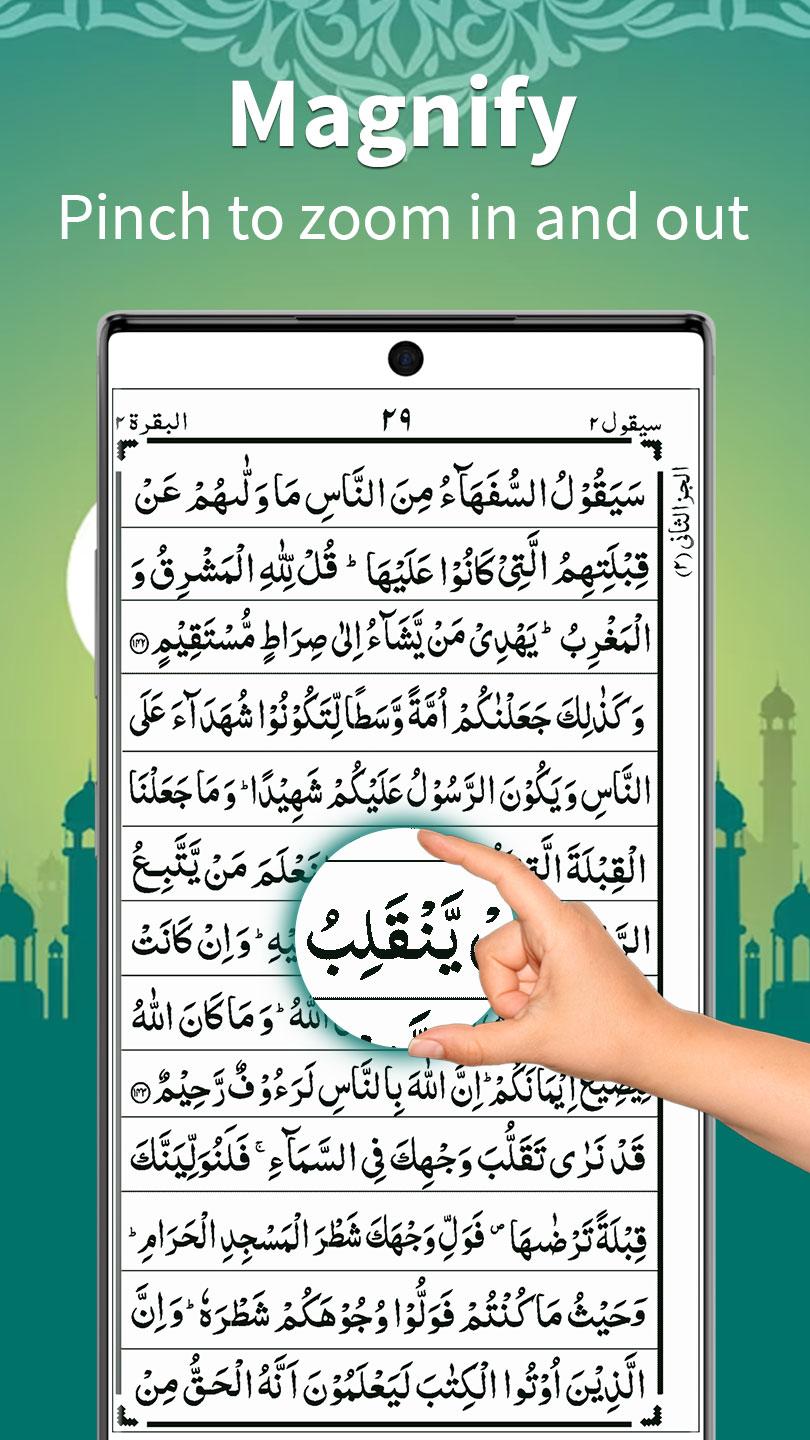 Magnify
Pinch to zoom in and out
سيقول ٢
٢٩
البقرة ٢
الجزء الثانی (٢)
سَيَقُوْلُ السُّفَهَآءُ مِنَ النَّاسِ مَا وَلّٰىهُمْ عَنْ
قِبْلَتِهِمُ الَّتِیْ كَانُوْا عَلَيْهَا ؕ قُلْ لِّلّٰهِ الْمَشْرِقُ وَ
الْمَغْرِبُ ؕ يَهْدِیْ مَنْ يَّشَآءُ اِلٰی صِرَاطٍ مُّسْتَقِيْمٍ ۝١٤٢
وَكَذٰلِكَ جَعَلْنٰكُمْ اُمَّةً وَّسَطًا لِّتَكُوْنُوْا شُهَدَآءَ عَلَی
النَّاسِ وَيَكُوْنَ الرَّسُوْلُ عَلَيْكُمْ شَهِيْدًا ؕ وَمَا جَعَلْنَا
الْقِبْلَةَ مَنْ يَّتَّبِعُ
يَّنْقَلِبُ وَاِنْ كَانَتْ
اللّٰهُ ؕ وَمَا كَانَ اللّٰهُ
لِيُضِيْعَ اِيْمَانَكُمْ ؕ اِنَّ اللّٰهَ بِالنَّاسِ لَرَءُوْفٌ رَّحِيْمٌ ۝١٤٣
قَدْ نَرٰی تَقَلُّبَ وَجْهِكَ فِی السَّمَآءِ ۚ فَلَنُوَلِّيَنَّكَ
قِبْلَةً تَرْضٰىهَا ۪ فَوَلِّ وَجْهَكَ شَطْرَ الْمَسْجِدِ الْحَرَامِ ؕ
وَحَيْثُ مَا كُنْتُمْ فَوَلُّوْا وُجُوْهَكُمْ شَطْرَهٗ ؕ وَاِنَّ
الَّذِيْنَ اُوْتُوا الْكِتٰبَ لَيَعْلَمُوْنَ اَنَّهُ الْحَقُّ مِنْ